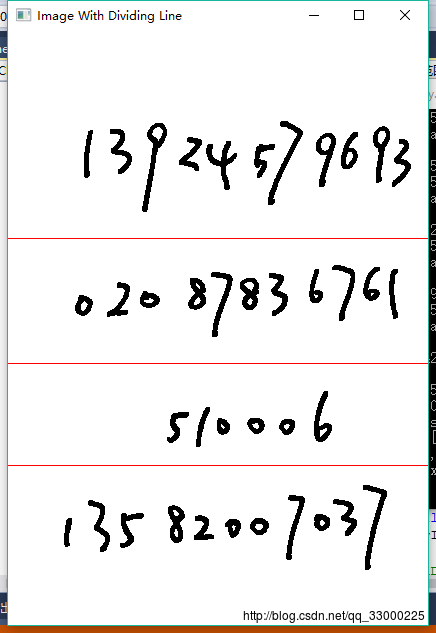 Image With Dividing Line
13924579693
020 87836761
510006
13582007037
http://blog.csdn.net/qq_33000225